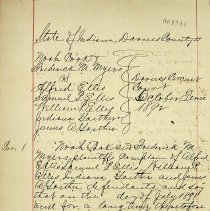 State of Indiana, Daviess County ss
Noah Cook
Frederick M. Myers
vs
Alfred Ellis
Samuel P. Ellis
William P. Ellis
Indiana Gaither
James A. Gaither
Daviess Circuit
Court
October Term
1892
Par. 1
Noah Cook and Frederick M.
Myers, plaintiffs complain of Alfred
Ellis, Samuel P. Ellis, William P.
Ellis, Indiana Gaither and James
A. Gaither defendants, and say
that on the day of July 1891
and for a long time